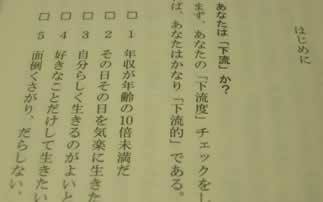 はじめに
あなたは「下流」か?
まず、あなたの「下流度」チェックをし
ば、あなたはかなり「下流的」である。
□ 1 年収が年齢の10倍未満だ
□ 2 その日その日を気楽に生きた
□ 3 自分らしく生きるのがよいと
□ 4 好きなことだけして生きたい
□ 5 面倒くさがり、だらしない、